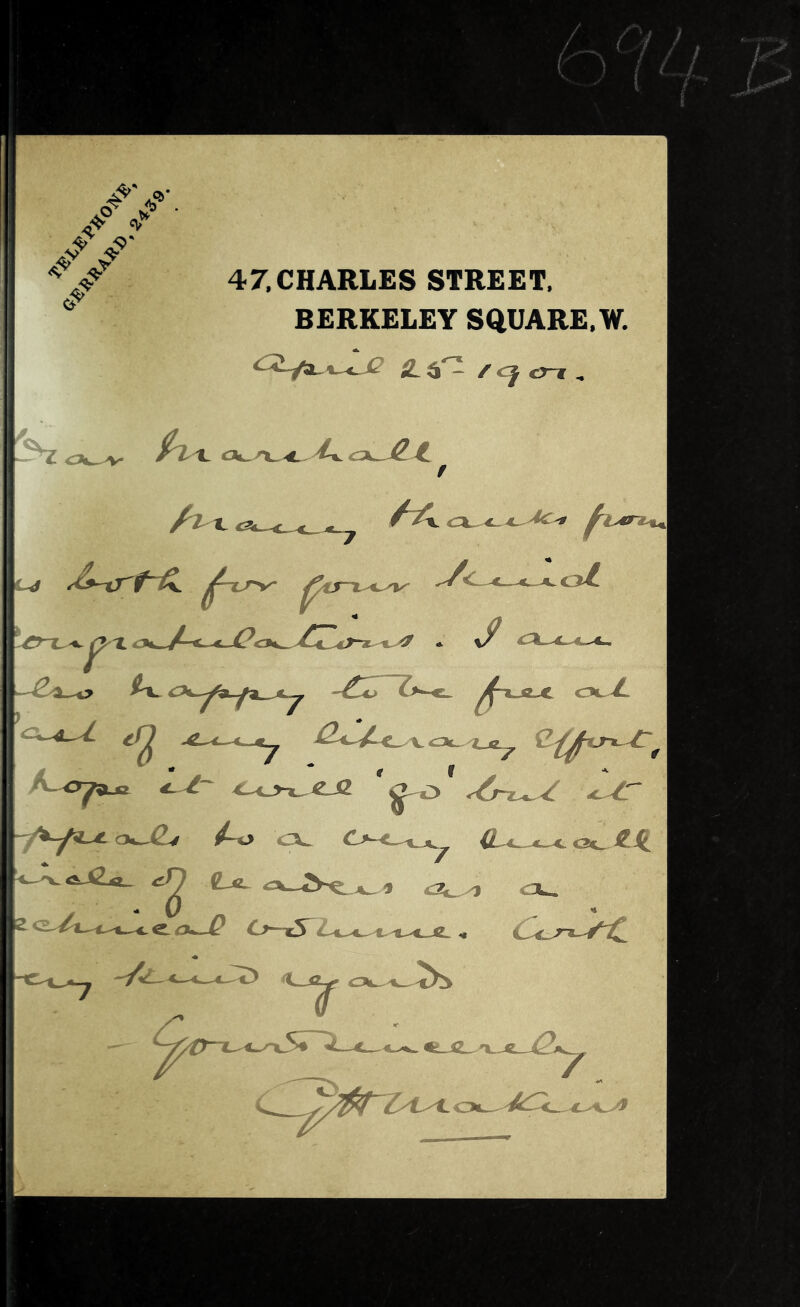 694 B
TELEPHONE,
GERRARD, 2439.
47, CHARLES STREET,
BERKELEY SQUARE. W.
April 25 - 1901 -
Dear Mr Marshall,
Many thanks from
us both for your kind
congratulations. I am
also happy to be free at
last of my literary effort,
hope it will 'go' but it
appeals to a very small
of readers as a
technical volume. With
very kind regards
Yours sincerely